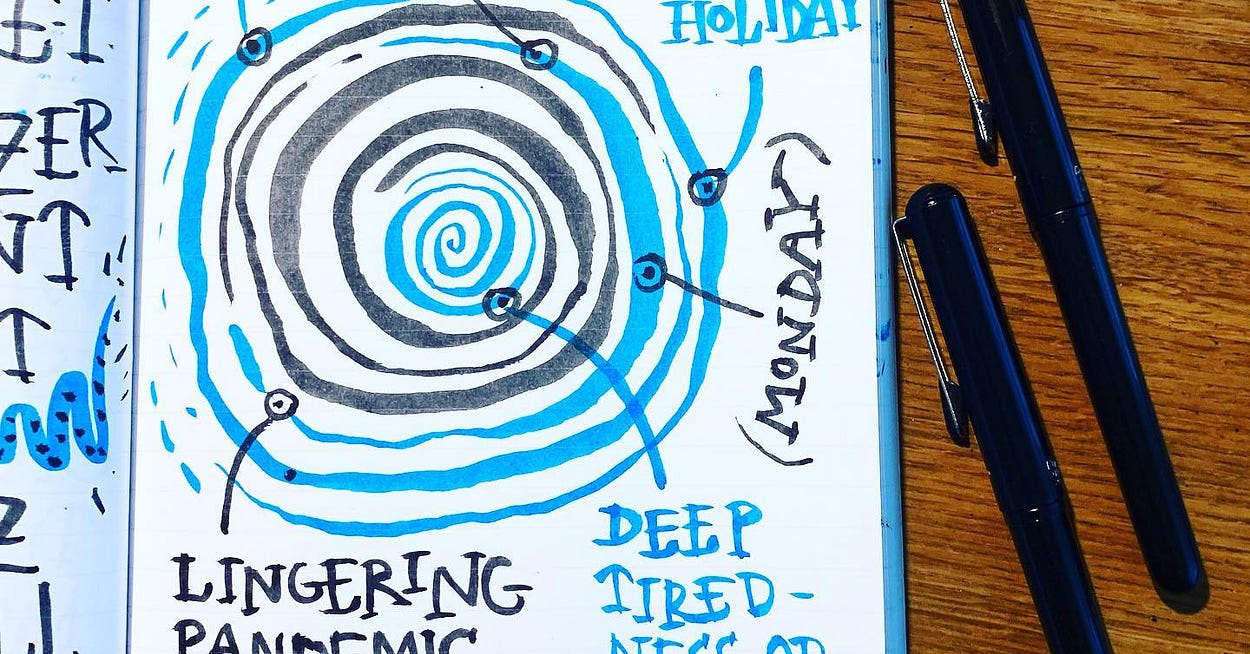 ZER
HOLIDAY
(MONDAY)
LINGERING
PANDEMIC
DEEP
TIRED-
NESS OR